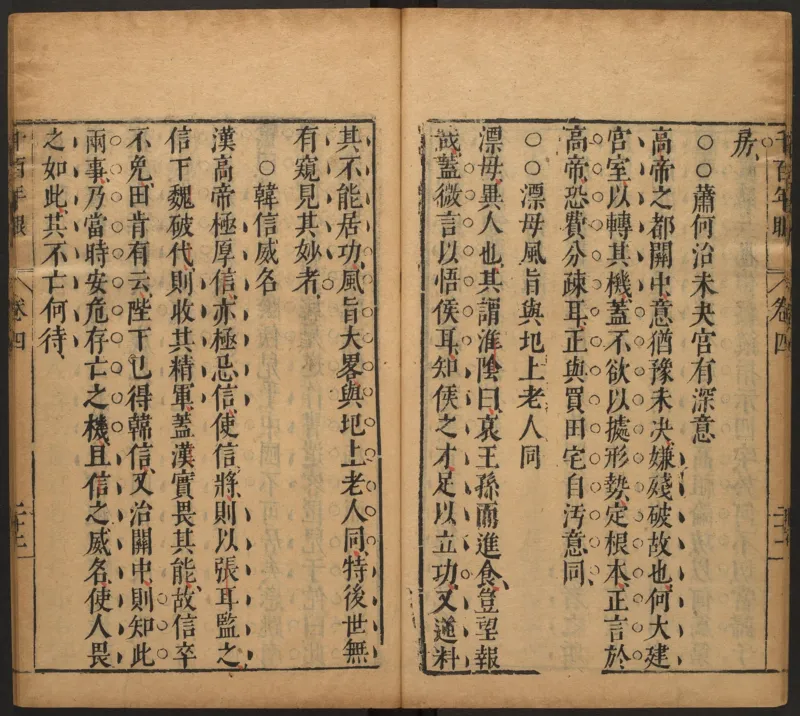 千百年眼 卷四
房
○○蕭何治未央宮有深意
高帝之都關中意猶豫未決嫌殘破故也何大建
宮室以轉其機蓋不欲以據形勢定根本正言於
高帝恐費分疎耳正與買田宅自汚意同
○○漂母風旨與圯上老人同
漂母異人也其謂淮陰曰哀王孫而進食豈望報
哉蓋微言以悟侯耳知侯之才足以立功又逆料
其不能居功風旨大畧與圯上老人同特後世無
有窺見其妙者
○韓信威名
漢高帝極厚信亦極忌信使信將則以張耳監之
信下魏破代則收其精軍蓋漢實畏其能故信卒
不免田肯有云陛下已得韓信又治關中則知此
兩事乃當時安危存亡之機且信之威名使人畏
之如此其不亡何待
千百年眼 卷四